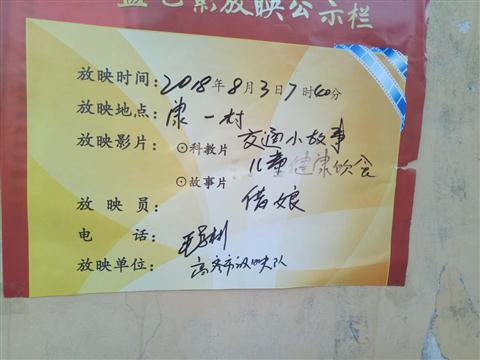 放映公示栏
放映时间：2018年8月3日7时40分
放映地点：康一村
放映影片：⊙科教片 交通小故事
儿童健康饮食
⊙故事片
放映员：借娘
电话：
放映单位：高密市放映大队